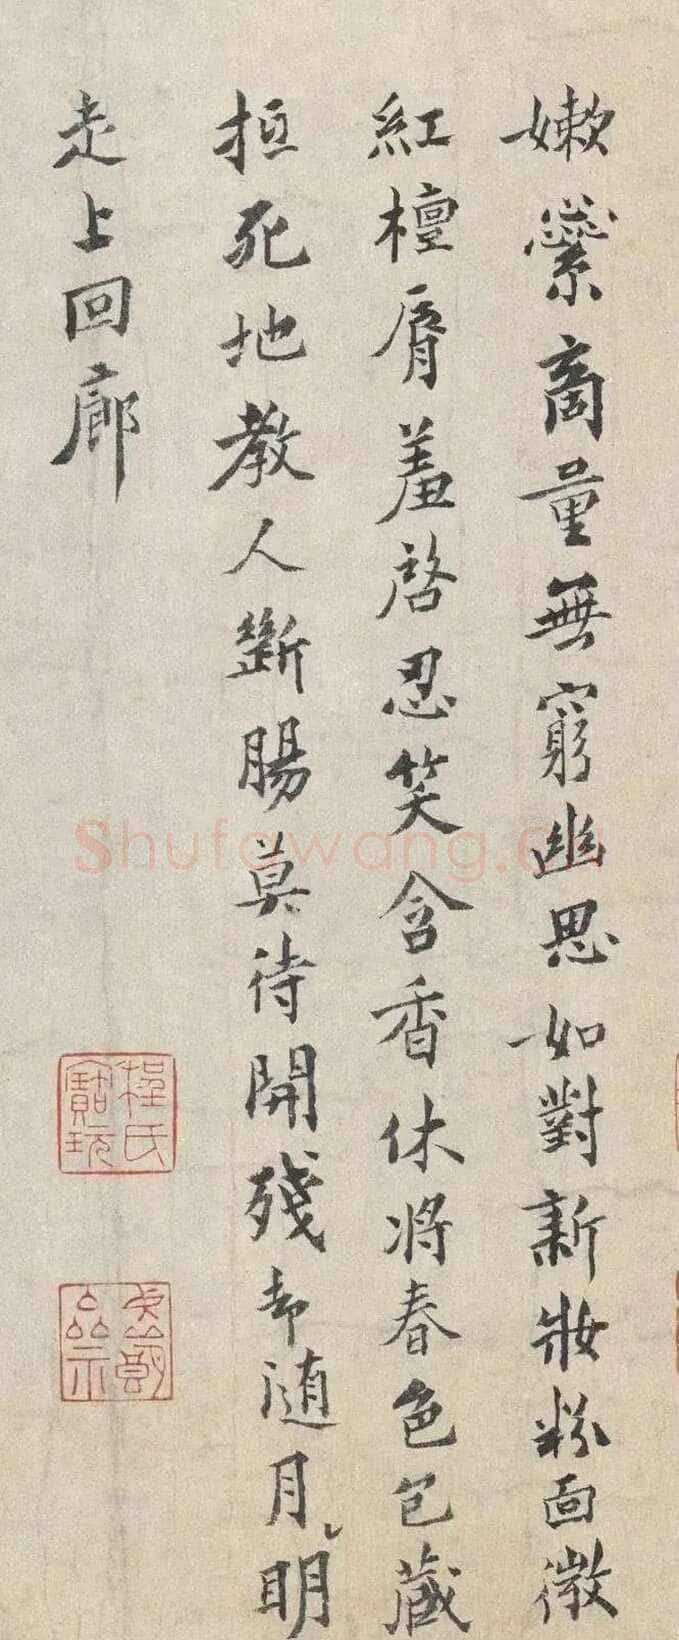 嫩蘂商量無窮幽思如對新妝粉面微
紅檀脣羞啓忍笑含香休將春色包藏
抵死地教人斷腸莫待開殘却隨明月
走上回廊
程氏
寶玩
Shufawang.cn